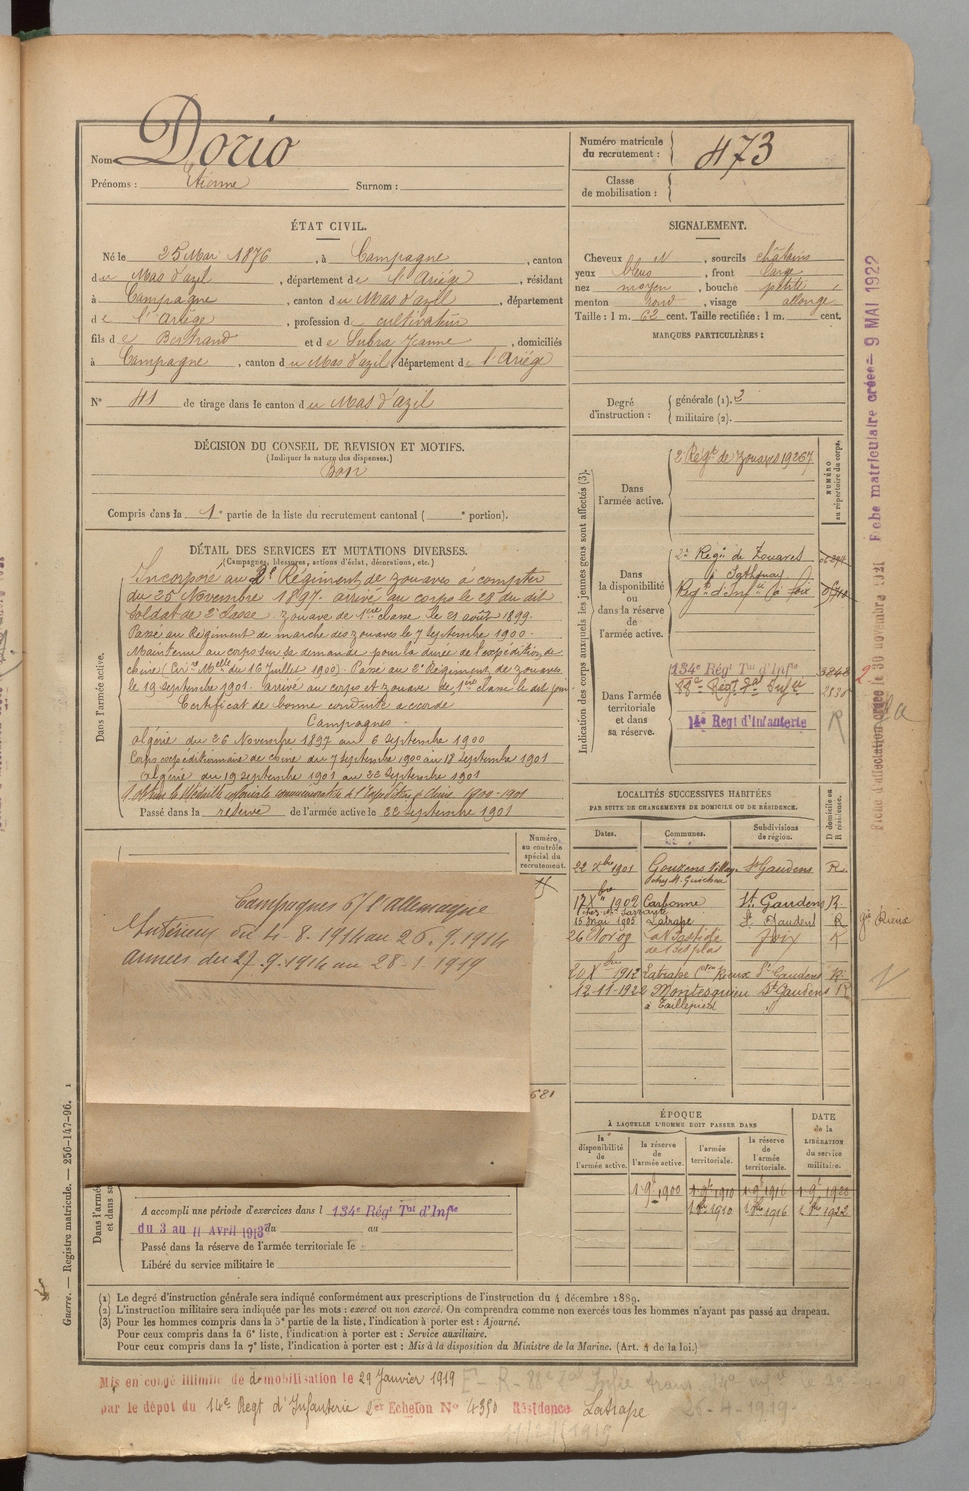 Nom Dorio
Prénoms : Etienne Surnom :
Numéro matricule
du recrutement : 473
Classe
de mobilisation :
ÉTAT CIVIL.
Né le 25 Mai 1876, à Campagne, canton
du Mas d'azil, département de l'Ariège, résidant
à Campagne, canton du Mas d'azil, département
de l'Ariège, profession de cultivateur
fils de Bertrand et de Subra Jeanne, domiciliés
à Campagne, canton du Mas d'azil, département de l'Ariège
N° 41 de tirage dans le canton du Mas d'azil
SIGNALEMENT.
Cheveux N, sourcils châtains
yeux bleus, front large
nez moyen, bouche petite
menton rond, visage allongé
Taille : 1 m. 62 cent. Taille rectifiée : 1 m. cent.
MARQUES PARTICULIÈRES :
Degré
d'instruction :
générale (1). 3
militaire (2).
DÉCISION DU CONSEIL DE REVISION ET MOTIFS.
(Indiquer la nature des dispenses.)
Bon
Compris dans la 1e partie de la liste du recrutement cantonal ( e portion).
DÉTAIL DES SERVICES ET MUTATIONS DIVERSES.
(Campagnes, blessures, actions d'éclat, décorations, etc.)
Dans l'armée active.
Incorporé au 2e Régiment de zouaves à compter
du 25 Novembre 1897. arrivé au corps le 28 du dit
soldat de 2e classe. zouave de 1ère classe le 21 août 1899.
Passé au Régiment de marche des zouaves le 7 septembre 1900.
Maintenu au corps sur sa demande pour la durée de l'expédition de
chine (Cire Melle du 16 Juillet 1900). Passé au 2e Régiment de zouaves
le 19 septembre 1901. arrivé au corps et zouave de 1ère classe le dit jour
Certificat de bonne conduite accordé
Campagnes
algérie du 26 Novembre 1897 au 6 septembre 1900
Corps expéditionnaire de chine du 7 septembre 1900 au 18 septembre 1901
Algérie du 19 septembre 1901 au 22 septembre 1901
Passé dans la réserve de l'armée active le 22 septembre 1901
Numéro
au contrôle
spécial du
recrutement.
Indication des corps auxquels les jeunes gens sont affectés (3).
NUMÉRO
au répertoire du corps.
Dans
l'armée active.
2 Régt de Zouaves 19267
Dans
la disponibilité
ou
dans la réserve
de
l'armée active.
2e Regt de Zouaves
à Sathonay
Regt d'Infie à Foix
Dans l'armée
territoriale
et dans
sa réserve.
134e Régt Tal d'Infie
88e Regt Tal Infie
14e Regt d'Infanterie
R
LOCALITÉS SUCCESSIVES HABITÉES
PAR SUITE DE CHANGEMENTS DE DOMICILE OU DE RÉSIDENCE.
Dates. Communes. Subdivisions
de région. D domicile ou
R résidence.
22 Xbre 1901 Gouzens St Gaudens R
17 Xbre 1902 Carbonne St Gaudens R
15 mai 1905 Latrape St Gaudens R
26 Nov 09 La Bastide Foix R
20 Xbre 1912 Latrape Con Rieux St Gaudens R
12-11-1922 Montesquieu St Gaudens R
à Taillepied
Campagnes c/ l'allemagne
Intérieur du 4-8-1914 au 26.9.1914
armées du 27.9.1914 au 28-1-1919
ÉPOQUE
À LAQUELLE L'HOMME DOIT PASSER DANS
DATE
de la
LIBÉRATION
du service
militaire.
la
disponibilité
de
l'armée active.
la réserve
de
l'armée active.
l'armée
territoriale.
la réserve
de
l'armée
territoriale.
1 9bre 1900 1 9bre 1910 1 9bre 1916 1 9bre 1922
1 8bre 1910 1 8bre 1916 1 8bre 1922
A accompli une période d'exercices dans l 134e Régt Tal d'Infie
du 3 au 11 Avril 1913 du au
Passé dans la réserve de l'armée territoriale le
Libéré du service militaire le
(1) Le degré d'instruction générale sera indiqué conformément aux prescriptions de l'instruction du 4 décembre 1889.
(2) L'instruction militaire sera indiquée par les mots : exercé ou non exercé. On comprendra comme non exercés tous les hommes n'ayant pas passé au drapeau.
(3) Pour les hommes compris dans la 5e partie de la liste, l'indication à porter est : Ajourné.
Pour ceux compris dans la 6e liste, l'indication à porter est : Service auxiliaire.
Pour ceux compris dans la 7e liste, l'indication à porter est : Mis à la disposition du Ministre de la Marine. (Art. 4 de la loi.)
Mis en congé illimité de démobilisation le 29 Janvier 1919
par le dépot du 14e Regt d'Infanterie 2e Echelon N° 4350 Résidence Latrape
26-4-1919
Guerre. — Registre matricule. — 256-147-96.
Fiche matriculaire créée = 9 MAI 1922
Fiche d'affectation créée le 30 novembre 1921